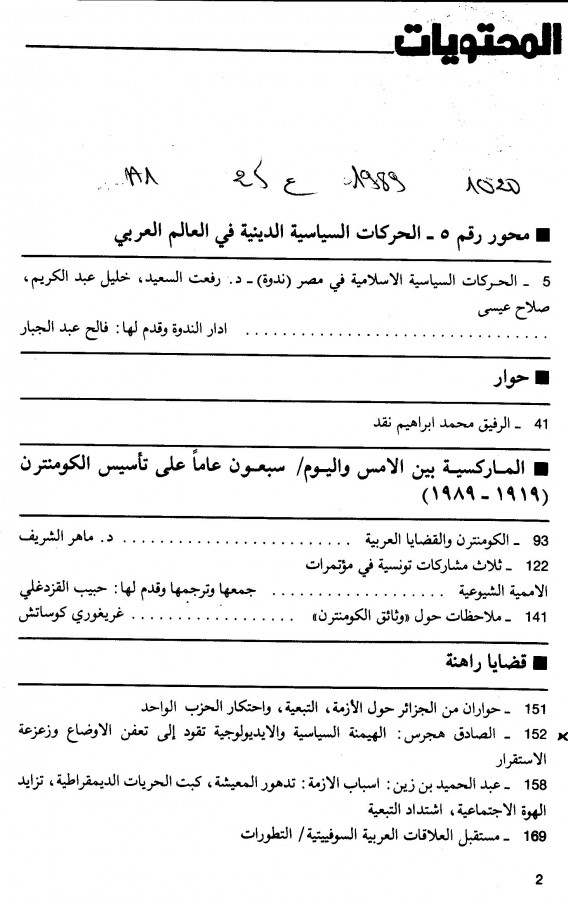 المحتويات
1020 1989 ع 25
■ محور رقم ٥ ـ الحركات السياسية الدينية في العالم العربي
5 ـ الحركات السياسية الاسلامية في مصر (ندوة) ـ د. رفعت السعيد، خليل عبد الكريم،
صلاح عيسى
ادار الندوة وقدم لها: فالح عبد الجبار
■ حوار
41 ـ الرفيق محمد ابراهيم نقد
■ الماركسية بين الامس واليوم/ سبعون عاماً على تأسيس الكومنترن
(١٩١٩ ـ ١٩٨٩)
93 ـ الكومنترن والقضايا العربية . . . . . . . . . . . . . . . . . . . . . . . . د. ماهر الشريف
122 ـ ثلاث مشاركات تونسية في مؤتمرات
الاممية الشيوعية . . . . . . . . . . . . . . . . . . جمعها وترجمها وقدم لها: حبيب القزدغلي
141 ـ ملاحظات حول «وثائق الكومنترن» . . . . . . . . . . . . . . . . . . غريغوري كوساتش
■ قضايا راهنة
151 ـ حواران من الجزائر حول الأزمة، التبعية، واحتكار الحزب الواحد
x 152 ـ الصادق هجرس: الهيمنة السياسية والايديولوجية تقود إلى تعفن الاوضاع وزعزعة
الاستقرار
158 ـ عبد الحميد بن زين: اسباب الازمة: تدهور المعيشة، كبت الحريات الديمقراطية، تزايد
الهوة الاجتماعية، اشتداد التبعية
169 ـ مستقبل العلاقات العربية السوفييتية/ التطورات
2